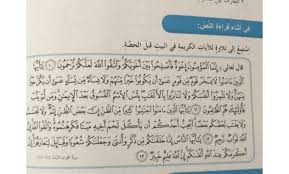 في أثناء قراءة النص:
استمع إلى تلاوة للآيات الكريمة في البيت قبل الحصة.
قال تعالى: ﴿إِنَّمَا الْمُؤْمِنُونَ إِخْوَةٌ فَأَصْلِحُوا بَيْنَ أَخَوَيْكُمْ وَاتَّقُوا اللَّهَ لَعَلَّكُمْ تُرْحَمُونَ ﴿١٠﴾ يَا أَيُّهَا
الَّذِينَ آمَنُوا لَا يَسْخَرْ قَوْمٌ مِنْ قَوْمٍ عَسَى أَنْ يَكُونُوا خَيْرًا مِنْهُمْ وَلَا نِسَاءٌ مِنْ نِسَاءٍ عَسَى أَنْ يَكُنَّ خَيْرًا
مِنْهُنَّ وَلَا تَلْمِزُوا أَنْفُسَكُمْ وَلَا تَنَابَزُوا بِالْأَلْقَابِ بِئْسَ الِاسْمُ الْفُسُوقُ بَعْدَ الْإِيمَانِ وَمَنْ لَمْ يَتُبْ فَأُولَئِكَ هُمُ
الظَّالِمُونَ ﴿١١﴾ يَا أَيُّهَا الَّذِينَ آمَنُوا اجْتَنِبُوا كَثِيرًا مِنَ الظَّنِّ إِنَّ بَعْضَ الظَّنِّ إِثْمٌ وَلَا تَجَسَّسُوا
وَلَا يَغْتَبْ بَعْضُكُمْ بَعْضًا أَيُحِبُّ أَحَدُكُمْ أَنْ يَأْكُلَ لَحْمَ أَخِيهِ مَيْتًا فَكَرِهْتُمُوهُ وَاتَّقُوا اللَّهَ إِنَّ
اللَّهَ تَوَّابٌ رَحِيمٌ ﴿١٢﴾ يَا أَيُّهَا النَّاسُ إِنَّا خَلَقْنَاكُمْ مِنْ ذَكَرٍ وَأُنْثَى وَجَعَلْنَاكُمْ شُعُوبًا وَقَبَائِلَ لِتَعَارَفُوا إِنَّ
أَكْرَمَكُمْ عِنْدَ اللَّهِ أَتْقَاكُمْ إِنَّ اللَّهَ عَلِيمٌ خَبِيرٌ ﴿١٣﴾